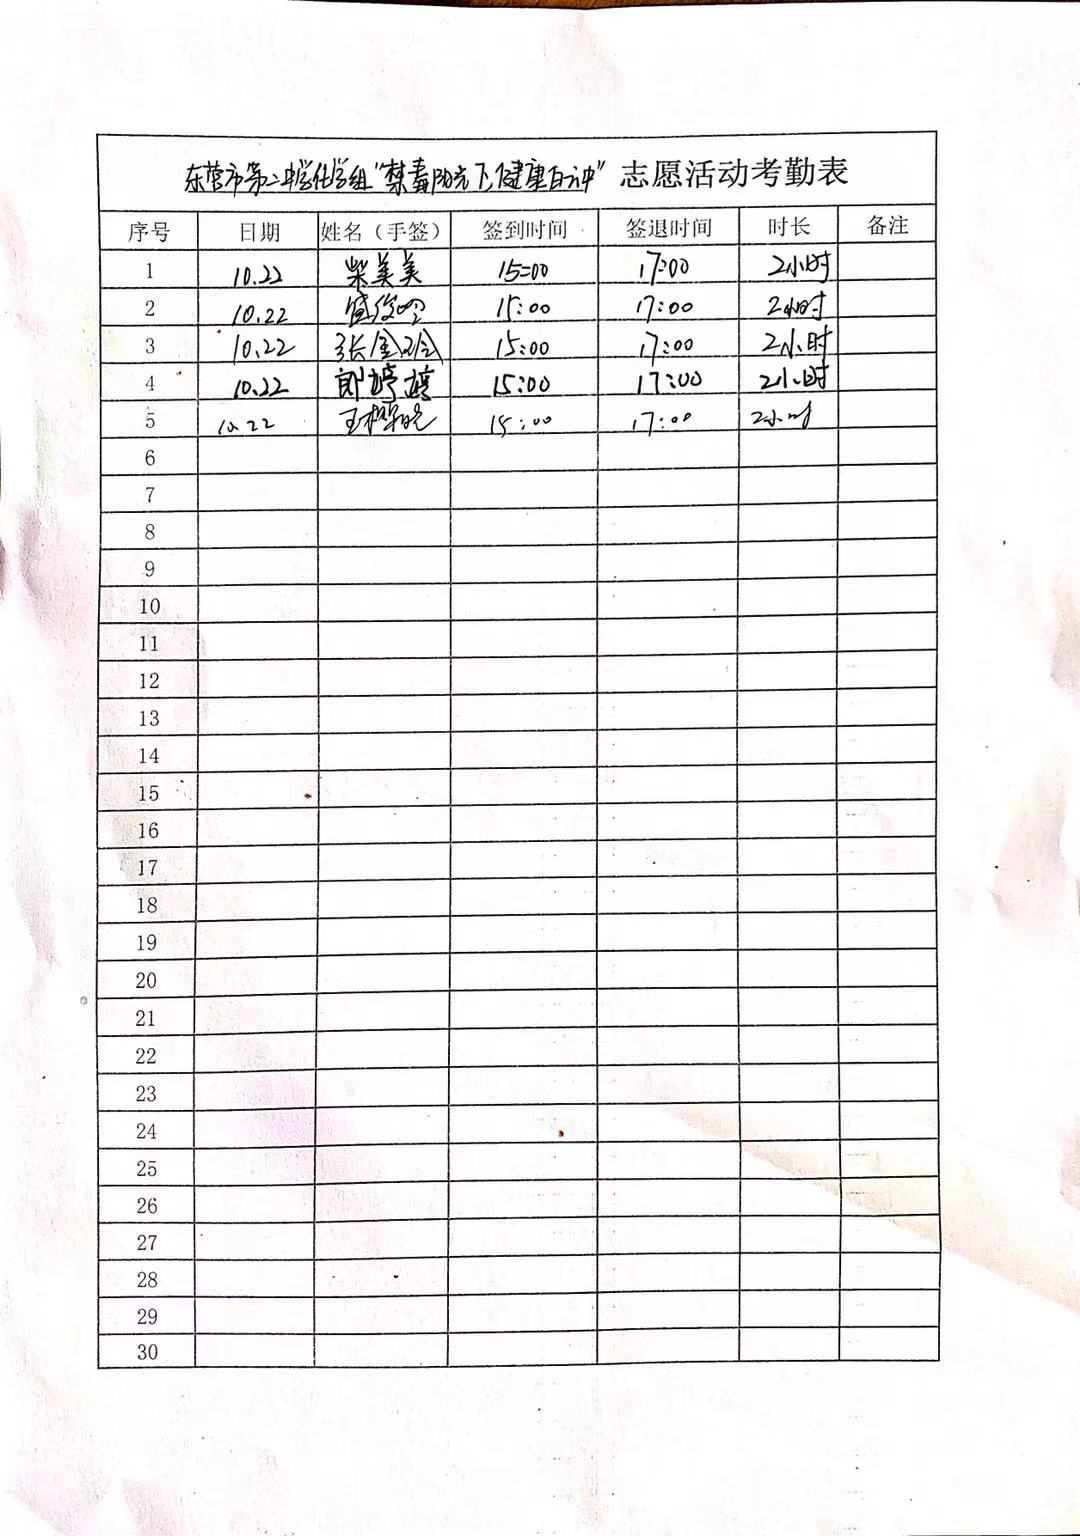 东营市第二中学化学组“禁毒阳光下,健康自护”志愿活动考勤表
序号 日期 姓名（手签） 签到时间 签退时间 时长 备注
1 10.22 柴美美 15:00 17:00 2小时
2 10.22 15:00 17:00 2小时
3 10.22 15:00 17:00 2小时
4 10.22 郎婷婷 15:00 17:00 2小时
5 10.22 15:00 17:00 2小时
6
7
8
9
10
11
12
13
14
15
16
17
18
19
20
21
22
23
24
25
26
27
28
29
30